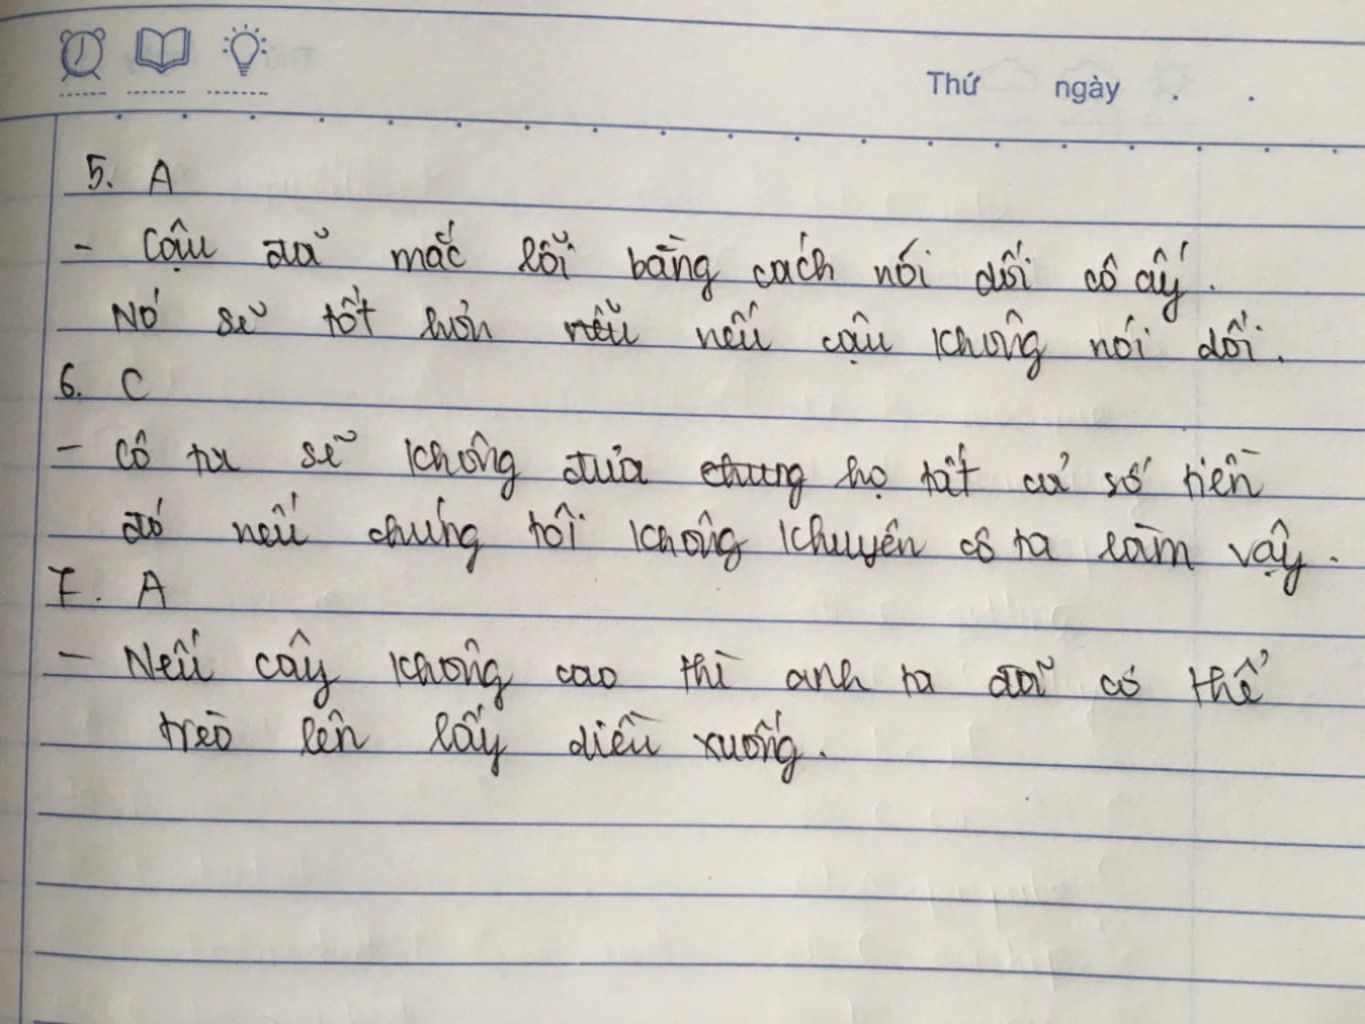 Thứ ngày . .
5. A
- Cậu đã mắc lỗi bằng cách nói dối cô ấy.
Nó sẽ tốt hơn nếu nếu cậu không nói dối.
6. C
- Cô ta sẽ không đưa chung họ tất cả số tiền
đó nếu chúng tôi không khuyên cô ta làm vậy.
7. A
- Nếu cây không cao thì anh ta đã có thể
trèo lên lấy diều xuống.